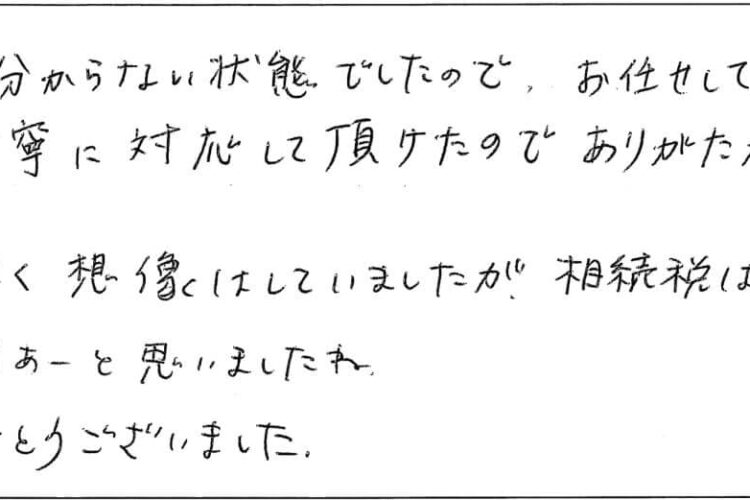 分からない状態でしたので、お任せして
寧に対応して頂けたのでありがたか
く想像はしていましたが、相続税は
ぁーと思いましたね。
とうございました。